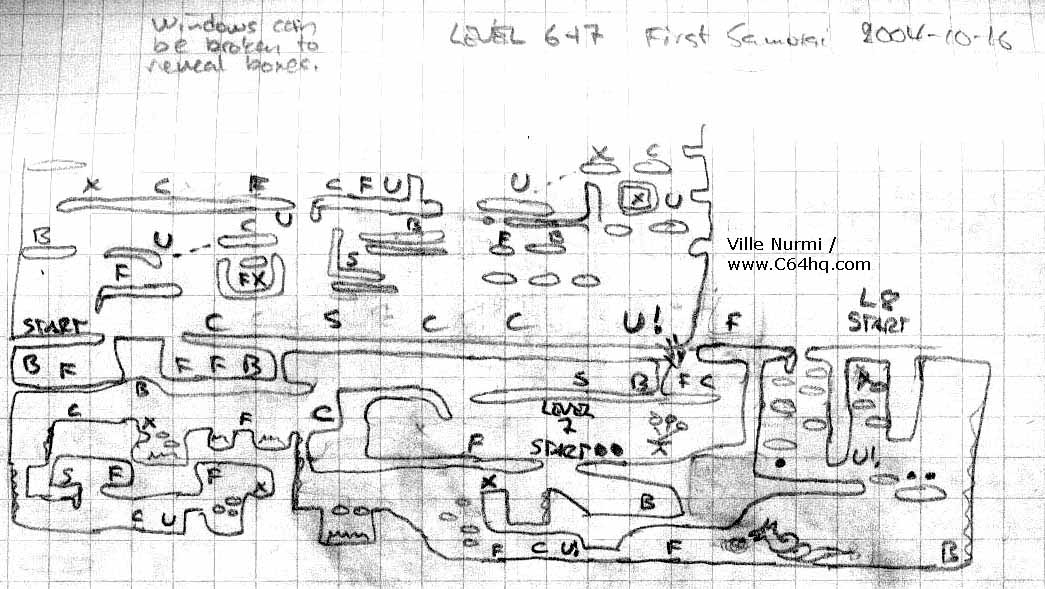 Windows can
be broken to
reveal boxes.
LEVEL 6+7 First Samurai 2004-10-16
X C
X C F C F U U X U
B U C B F B
F F X S
Ville Nurmi /
www.C64hq.com
L8
START
START C S C C U! F
B F F F B S B F C
B
C X F C LEVEL
7
START
F X
S F F X X B U!
C U F C U! F B